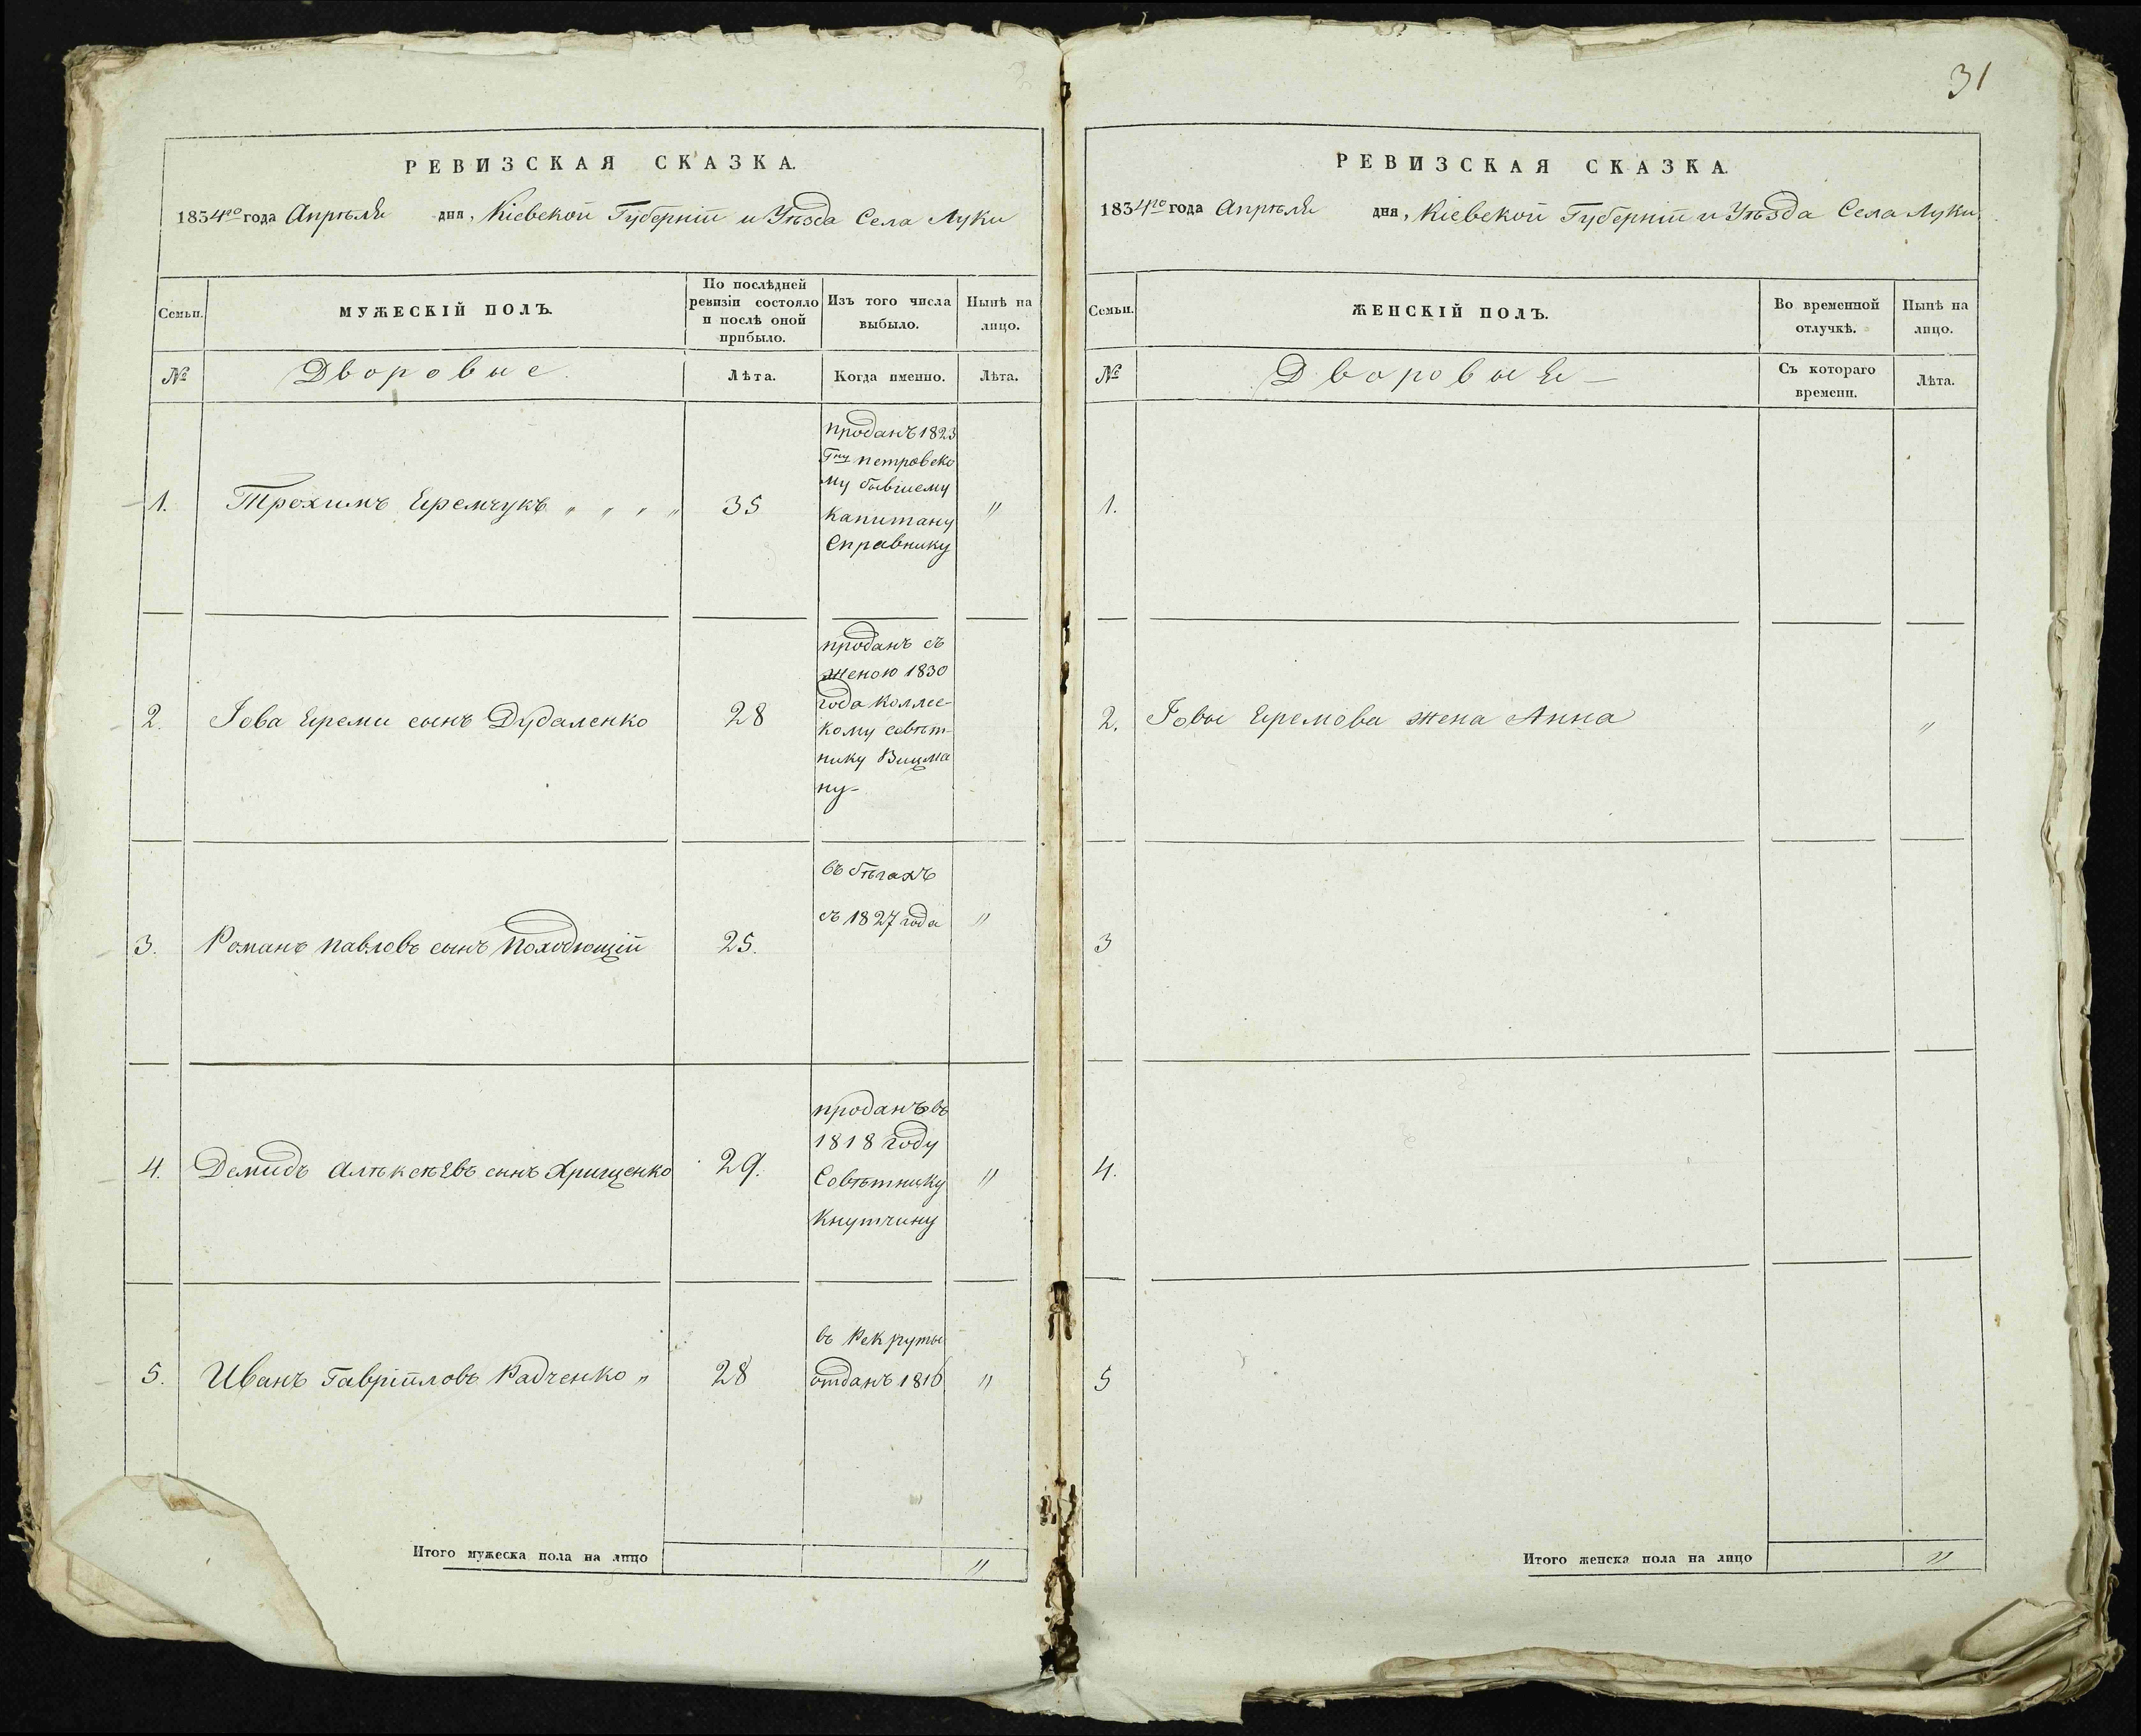 31
РЕВИЗСКАЯ СКАЗКА.
1834го года Апрѣля дня, Кіевской Губерніи и Уѣзда Села Луки
Семьи.
МУЖЕСКІЙ ПОЛЪ.
По послѣдней
ревизіи состояло
и послѣ оной
прибыло.
Изъ того числа
выбыло.
Нынѣ на
лицо.
№
Дворовые
Лѣта.
Когда именно.
Лѣта.
1.
Трохимъ Еремчукъ „ „ „ „
35
проданъ 1823
Гну петровско
му бывшему
капитану
Справнику
„
2.
Іова Ереми сынъ Дудаленко
28
проданъ съ
женою 1830
года коллес-
кому совѣт-
нику Вицма
ну-
3.
Романъ павловъ сынъ
25.
въ бѣгахъ
съ 1827 года
„
4.
Демидъ Алѣксѣевъ сынъ Хрищенко
29.
проданъ въ
1818 году
Совѣтнику
Кнутчину
„
5.
Иванъ Гавріиловъ Радченко „
28
въ Рекруты
отданъ 1816
„
Итого мужеска пола на лицо
„
РЕВИЗСКАЯ СКАЗКА.
1834го года Апрѣля дня, Кіевской Губерніи и Уѣзда Села Луки
Семьи.
ЖЕНСКІЙ ПОЛЪ.
Во временной
отлучкѣ.
Нынѣ на
лицо.
№
Дворовые —
Съ котораго
времени.
Лѣта.
1.
2.
Іовы Еремова жена Анна
„
3
4.
5
Итого женска пола на лицо
„